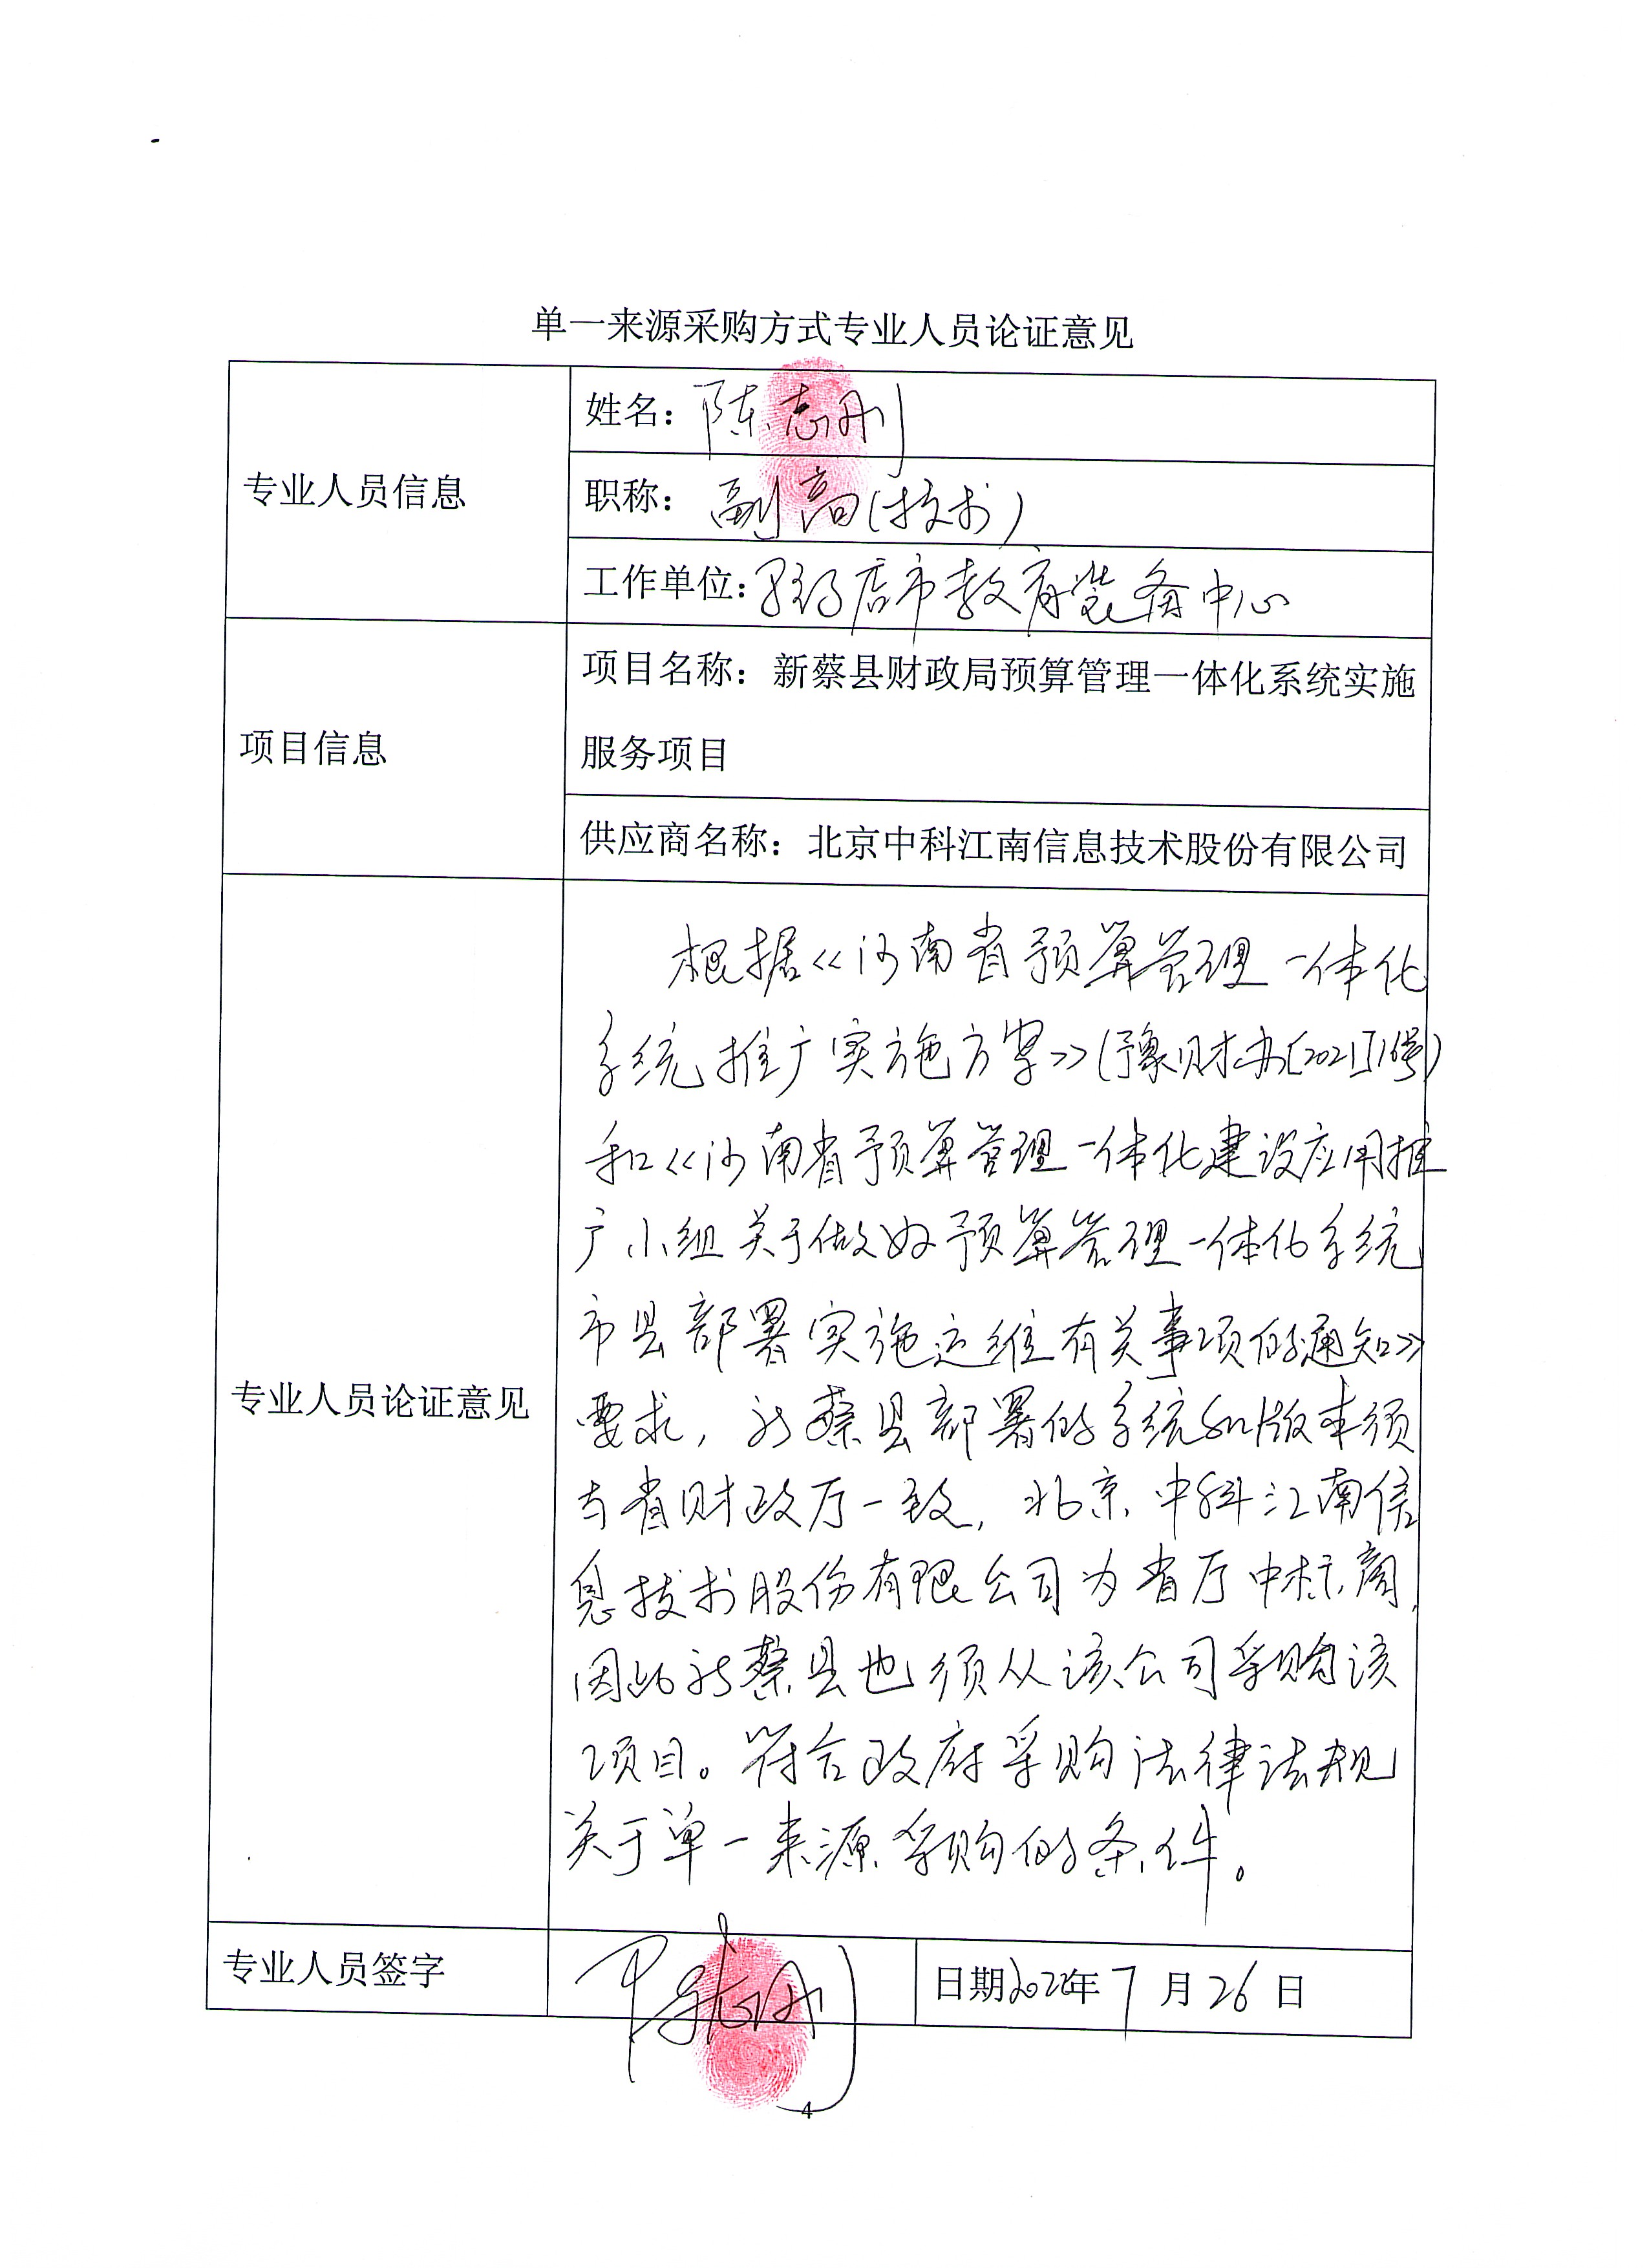 单一来源采购方式专业人员论证意见
专业人员信息
姓名：陈志刚
职称：副高（技术）
工作单位：驻马店市教育装备中心
项目信息
项目名称：新蔡县财政局预算管理一体化系统实施
服务项目
供应商名称：北京中科江南信息技术股份有限公司
专业人员论证意见
根据《河南省预算管理一体化
系统推广实施方案》（豫财办〔2021〕16号）
和《河南省预算管理一体化建设应用推
广小组关于做好预算管理一体化系统
市县部署实施运维有关事项的通知》
要求，新蔡县部署的系统和版本须
与省财政厅一致，北京中科江南信
息技术股份有限公司为省厅中标商，
因此新蔡县也须从该公司采购该
项目。符合政府采购法律法规
关于单一来源采购的条件。
专业人员签字
陈志刚
日期2022年7月26日
4